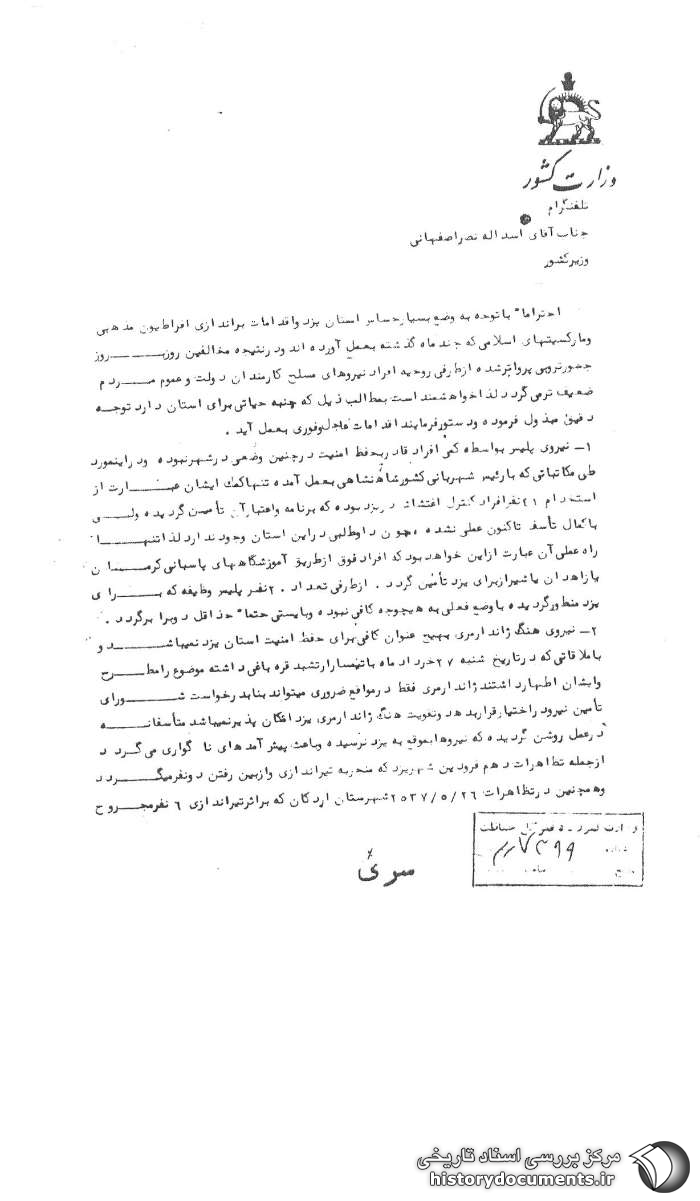 وزارت کشور
تلفنگرام
جناب آقای اسداله نصراصفهانی
وزیر کشور
احتراما" باتوجه به وضع بسیارحساس استان یزد واقدامات براندازی افراطیون مذهبی
ومارکسیتهای اسلامی که چند ماه گذشته بعمل آورده اند ودرنتیجه مخالفین روزبـــــــــروز
جسورتروبی پرواترشده ازطرفی روحیه افراد نیروهای مسلح کارمندان دولت و عموم مـــردم
ضعیف ترمی گردد لذاخواهشمند است بمطالب ذیل که جنبه حیاتی برای استان دارد توجه
دقیق مبذول فرموده ودستورفرمایند اقدامات عاجل وفوری بعمل آید .
۱ـ نیروی پلیس بواسطه کمی افراد قادربحفظ امنیت درچنین وضعی درشهرنبوده ودراینمورد
طی مکاتباتی که بارئیس شهربانی کشورشاهنشاهی بعمل آمده تنهاکمک ایشان عبـــــارت از
استخدام ۲۱نفرافراد کنترل اغتشاش دریزد بوده که برنامه واعتبارآن تأمین گردیده ولــــی
باکمال تأسف تاکنون عملی نشده وچون داوطلبی دراین استان وجود ندارد لذاتنهـــــــا
راه عملی آن عبارت ازاین خواهد بود که افراد فوق ازطریق آموزشگاههای پاسبانی کرمـــان
یازاهدان یاشیرازبرای یزد تأمین گردد . ازطرفی تعداد ۲۰نفر پلیس وظیفه که بـــــرای
یزد منظورگردیده باوضع فعلی به هیچوجه کافی نبوده وبایستی حتما" حداقل دوبرابرگردد .
۲ـ نیروی هنگ ژاندارمری بهیچ عنوان کافی برای حفظ امنیت استان یزد نمیباشـــــد و
باملاقاتی که درتاریخ شنبه ۲۷خرداد ماه باتیمسارارتشبد قره باغی داشته موضوع رامطـــرح
وایشان اظهارداشتند ژاندارمری فقط درمواقع ضروری میتواند بنابدرخواست شـــــورای
تأمین نیرودراختیارقراربدهد وتقویت هنگ ژاندارمری یزد امکان پذیرنمیباشد متأسفانـــه
درعمل روشن گردیده که نیروهابموقع به یزد نرسیده وباعث پیش آمدهای ناگواری می گردد
ازجمله تظاهرات دهم فرودین شهریزد که منجربه تیراندازی وازبین رفتن دونفرمیگـــــردد
وهمچنین درتظاهرات ۲۵۳۷/۵/۲۶شهرستان اردکان که براثرتیراندازی ۶ نفرمجـــروح
سری
مرکز بررسی اسناد تاریخی
historydocuments.ir